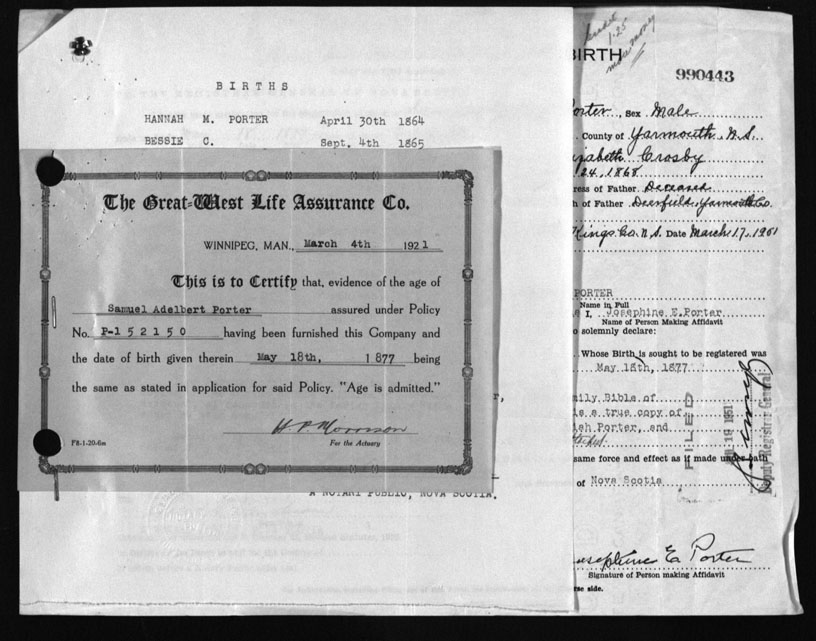 BIRTHS
HANNAH M. PORTER April 30th 1864
BESSIE C. Sept. 4th 1865
The Great-West Life Assurance Co.
WINNIPEG, MAN., March 4th 1921
This is to Certify that, evidence of the age of
Samuel Adelbert Porter assured under Policy
No. P-152150 having been furnished this Company and
the date of birth given therein May 18th, 1877 being
the same as stated in application for said Policy. "Age is admitted."
H.P. Morrison
For the Actuary
F8-1-20-6m
A NOTARY PUBLIC, NOVA SCOTIA.
1.25
more money
BIRTH
990443
Porter, Sex Male
County of Yarmouth, N.S.
Elizabeth Crosby
24, 1868
ress of Father Deceased
h of Father Deerfield, Yarmouth Co.
Kings Co. N.S. Date March 17, 1951
PORTER
Name in Full
I, Josephine E. Porter
Name of Person Making Affidavit
o solemnly declare:
Whose Birth is sought to be registered was
May 18th, 1877
mily Bible of
is a true copy of
ish Porter, and
tached
same force and effect as if made under oath
of Nova Scotia
FILED
19 1951
Deputy Registrar General
Josephine E. Porter
Signature of Person making Affidavit
rse side.